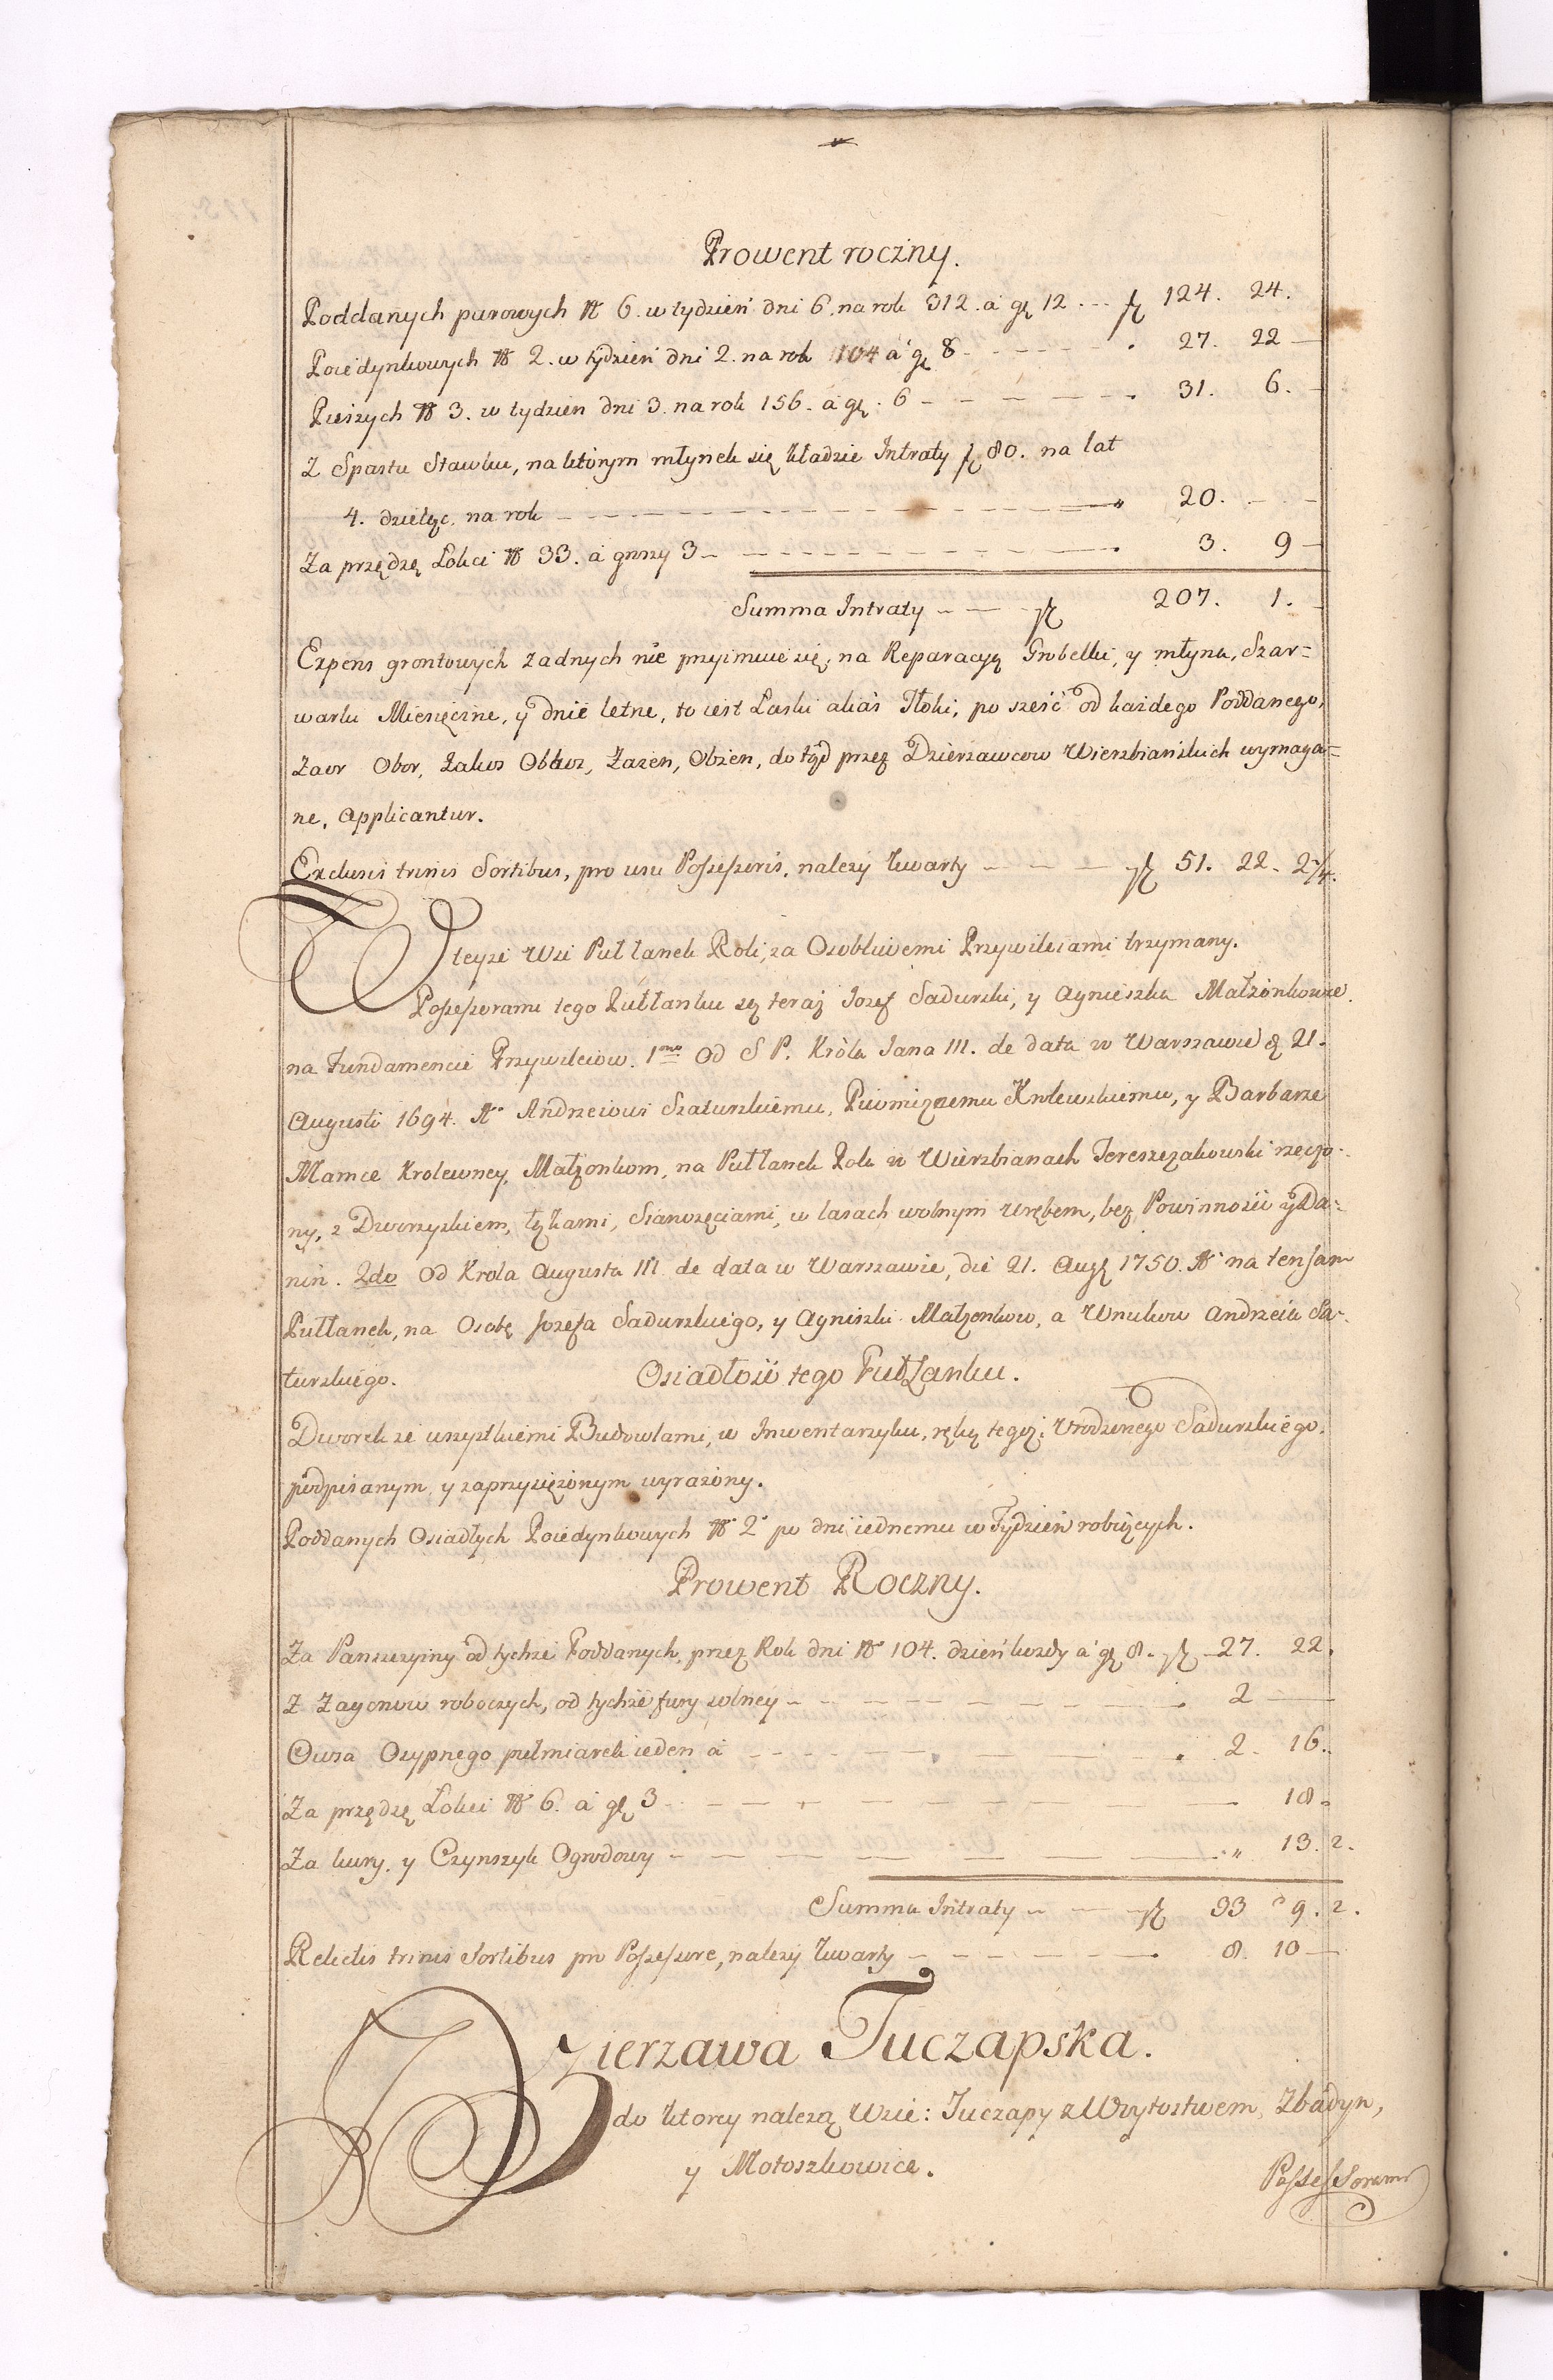 Prowent roczny.
Poddanych parowych N 6. w tydzień dni 6. na rok 312. a gz 12 --- fz 124. 24.
Poiedynkowych N 2. w tydzień dni 2. na rok 104 a gz 8 - - - - 27. 22 -
Pieszych N 3. w tydzien dni 3. na rok 156. a gz. 6 - - - - 31. 6. -
Z Spastu Stawku, na ktorym młynek się kładzie Intraty fz 80. na lat
4. dzieląc. na rok - - - - 20. - -
Za przędzę Łokci N 33. a groszy 3 - - - - 3. 9 -
Summa Intraty - - - fz 207. 1. -
Expens grontowych żadnych nie przyimuie się, na Reparacyą Grobelki, y młyna, Szar=
warki Miesięczne, y dnie letne, to iest Łaski alias Tłoki, po sześć od każdego Poddanego,
Zaor Obor, Zakos Obkos, Zażen, Obżen, do tąd przez Dzierżawcow Wierzbiańskich wymaga=
ne, applicantur.
Exclusis trinis Sortibus, pro usu Possessoris, należy kwarty - - - fz 51. 22. 2 1/4.
W teyże Wsi Pułłanek Roli, za Osobliwemi Przywileiami trzymany.
Possessorami tego Pułłanku są teraz Iozef Sadurski, y Agnieszka Małżonkowie.
na Fundamencie Przywileiow. 1mo Od S P. Króla Jana III. de data w Warszawie d 21.
Augusti 1694. Ao Andrzeiowi Szaturskiemu, Piwnicznemu Krolewskiemu, y Barbarze
Mamce Krolewney, Małżonkom, na Pułłanek Rolı w Wierzbianach Tereszczakowski rzeczo-
ny, z Dworzyskiem, łąkami, Sianożęciami, w lasach wolnym wrębem, bez Powinności y Da=
nin. 2do Od Krola Augusta III de data w Warszawie, die 21. Augz 1750. Ao na tensam
Pułłanek, na Osobę Jozefa Sadurskiego, y Agniszki Małżonkow, a Wnukow Andrzeia Sa-
turskiego. Osiadłość tego Pułłanku.
Dworek ze wszystkiemi Budowlami, w Inwentarzyku, ręką tegoż Urodzonego Sadurskiego,
podpisanym, y zaprzysiężonym wyrażony.
Poddanych Osiadłych Poiedynkowych N 2 po dni iednemu w Tydzień robiących.
Prowent Roczny.
Za Pańszczyzny od tychże Poddanych, przez Rok dni N 104. dzień każdy a gz 8. fz 27. 22.
Z Zagonow roboczych, od tychże fury solney - - - - 2 -
Owsa Osypnego pułmiarek ieden a - - - - 2. 16.
Za przędzę Łokci N 6. a gz 3 - - - - 18.
Za kury, y Czynszyk Ogrodowy - - - - 13. 2.
Summa Intraty - - - fz 33 9. 2.
Relictis trinis Sortibus pro Possessore, należy kwarty - - - - 8. 10 -
Dzierzawa Tuczapska.
do ktorey należą Wsie: Tuczapy z Woytostwem, Zbadyn,
y Mołoszkowice.
Possessorami